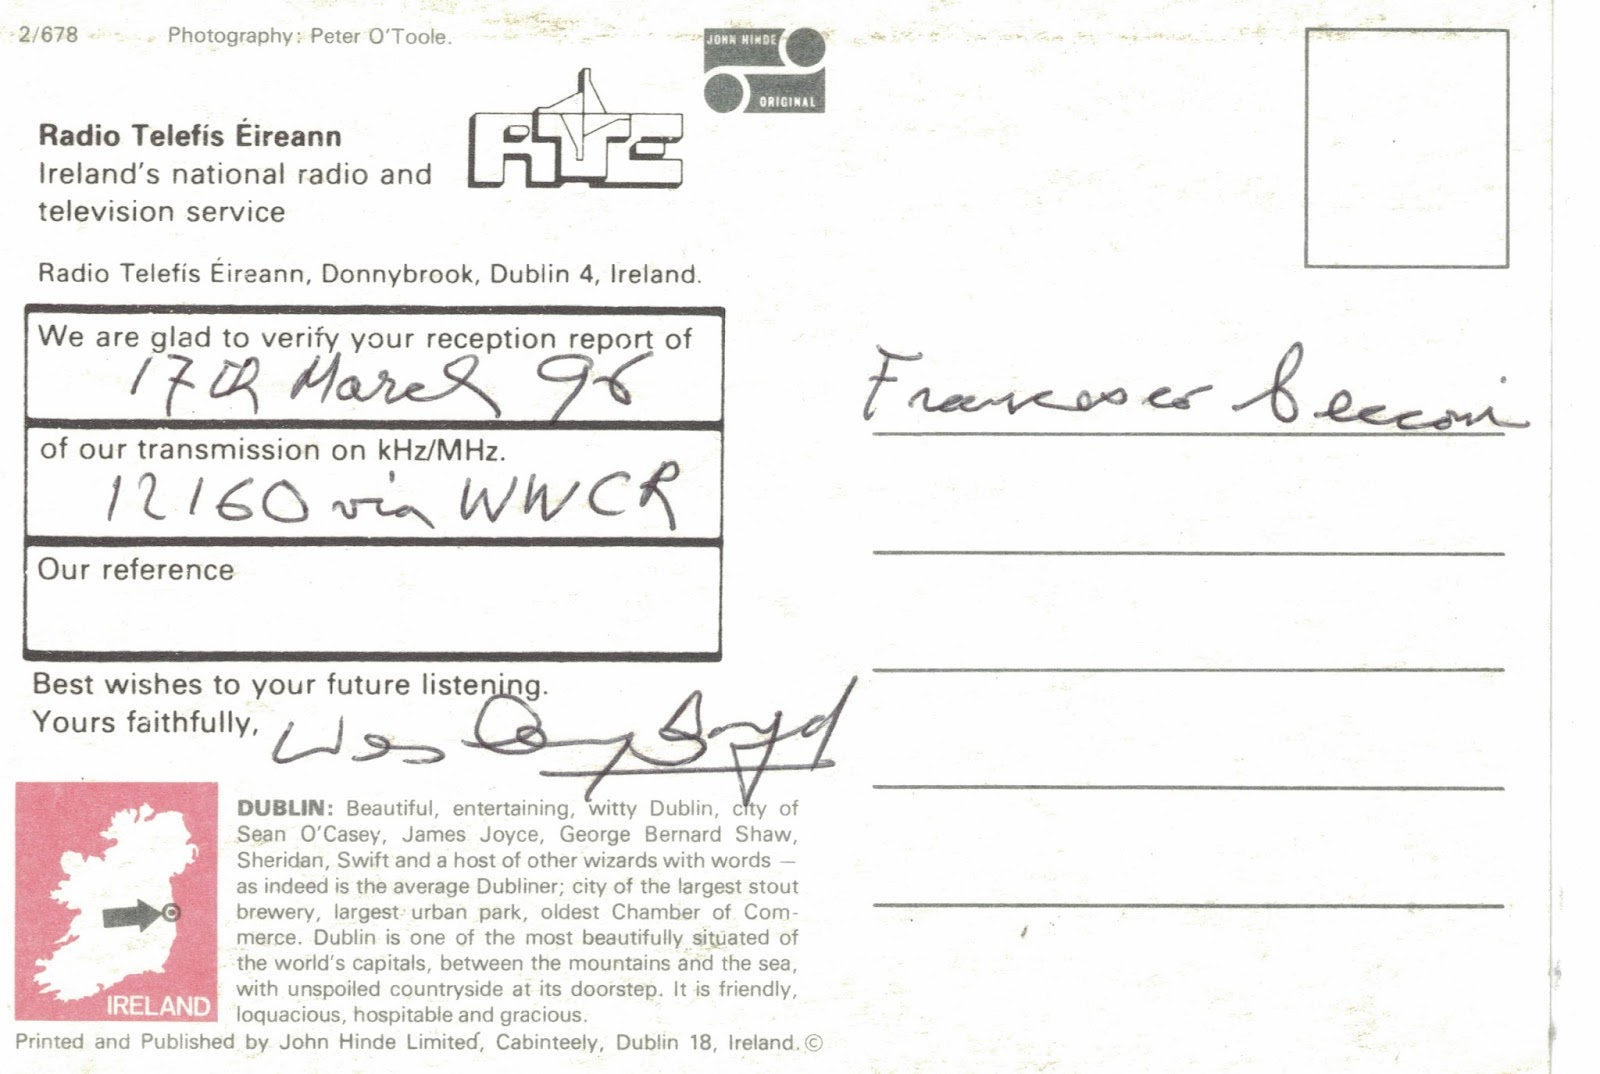 2/678 Photography: Peter O'Toole.
JOHN HINDE
ORIGINAL
RTE
Radio Telefís Éireann
Ireland's national radio and
television service
Radio Telefís Éireann, Donnybrook, Dublin 4, Ireland.
We are glad to verify your reception report of
17th March 96
of our transmission on kHz/MHz.
12160 via WWCR
Our reference
Best wishes to your future listening.
Yours faithfully,
Wesley Boyd
DUBLIN: Beautiful, entertaining, witty Dublin, city of
Sean O'Casey, James Joyce, George Bernard Shaw,
Sheridan, Swift and a host of other wizards with words —
as indeed is the average Dubliner; city of the largest stout
brewery, largest urban park, oldest Chamber of Com-
merce. Dublin is one of the most beautifully situated of
the world's capitals, between the mountains and the sea,
with unspoiled countryside at its doorstep. It is friendly,
loquacious, hospitable and gracious.
IRELAND
Printed and Published by John Hinde Limited, Cabinteely, Dublin 18, Ireland. ©
Francesco